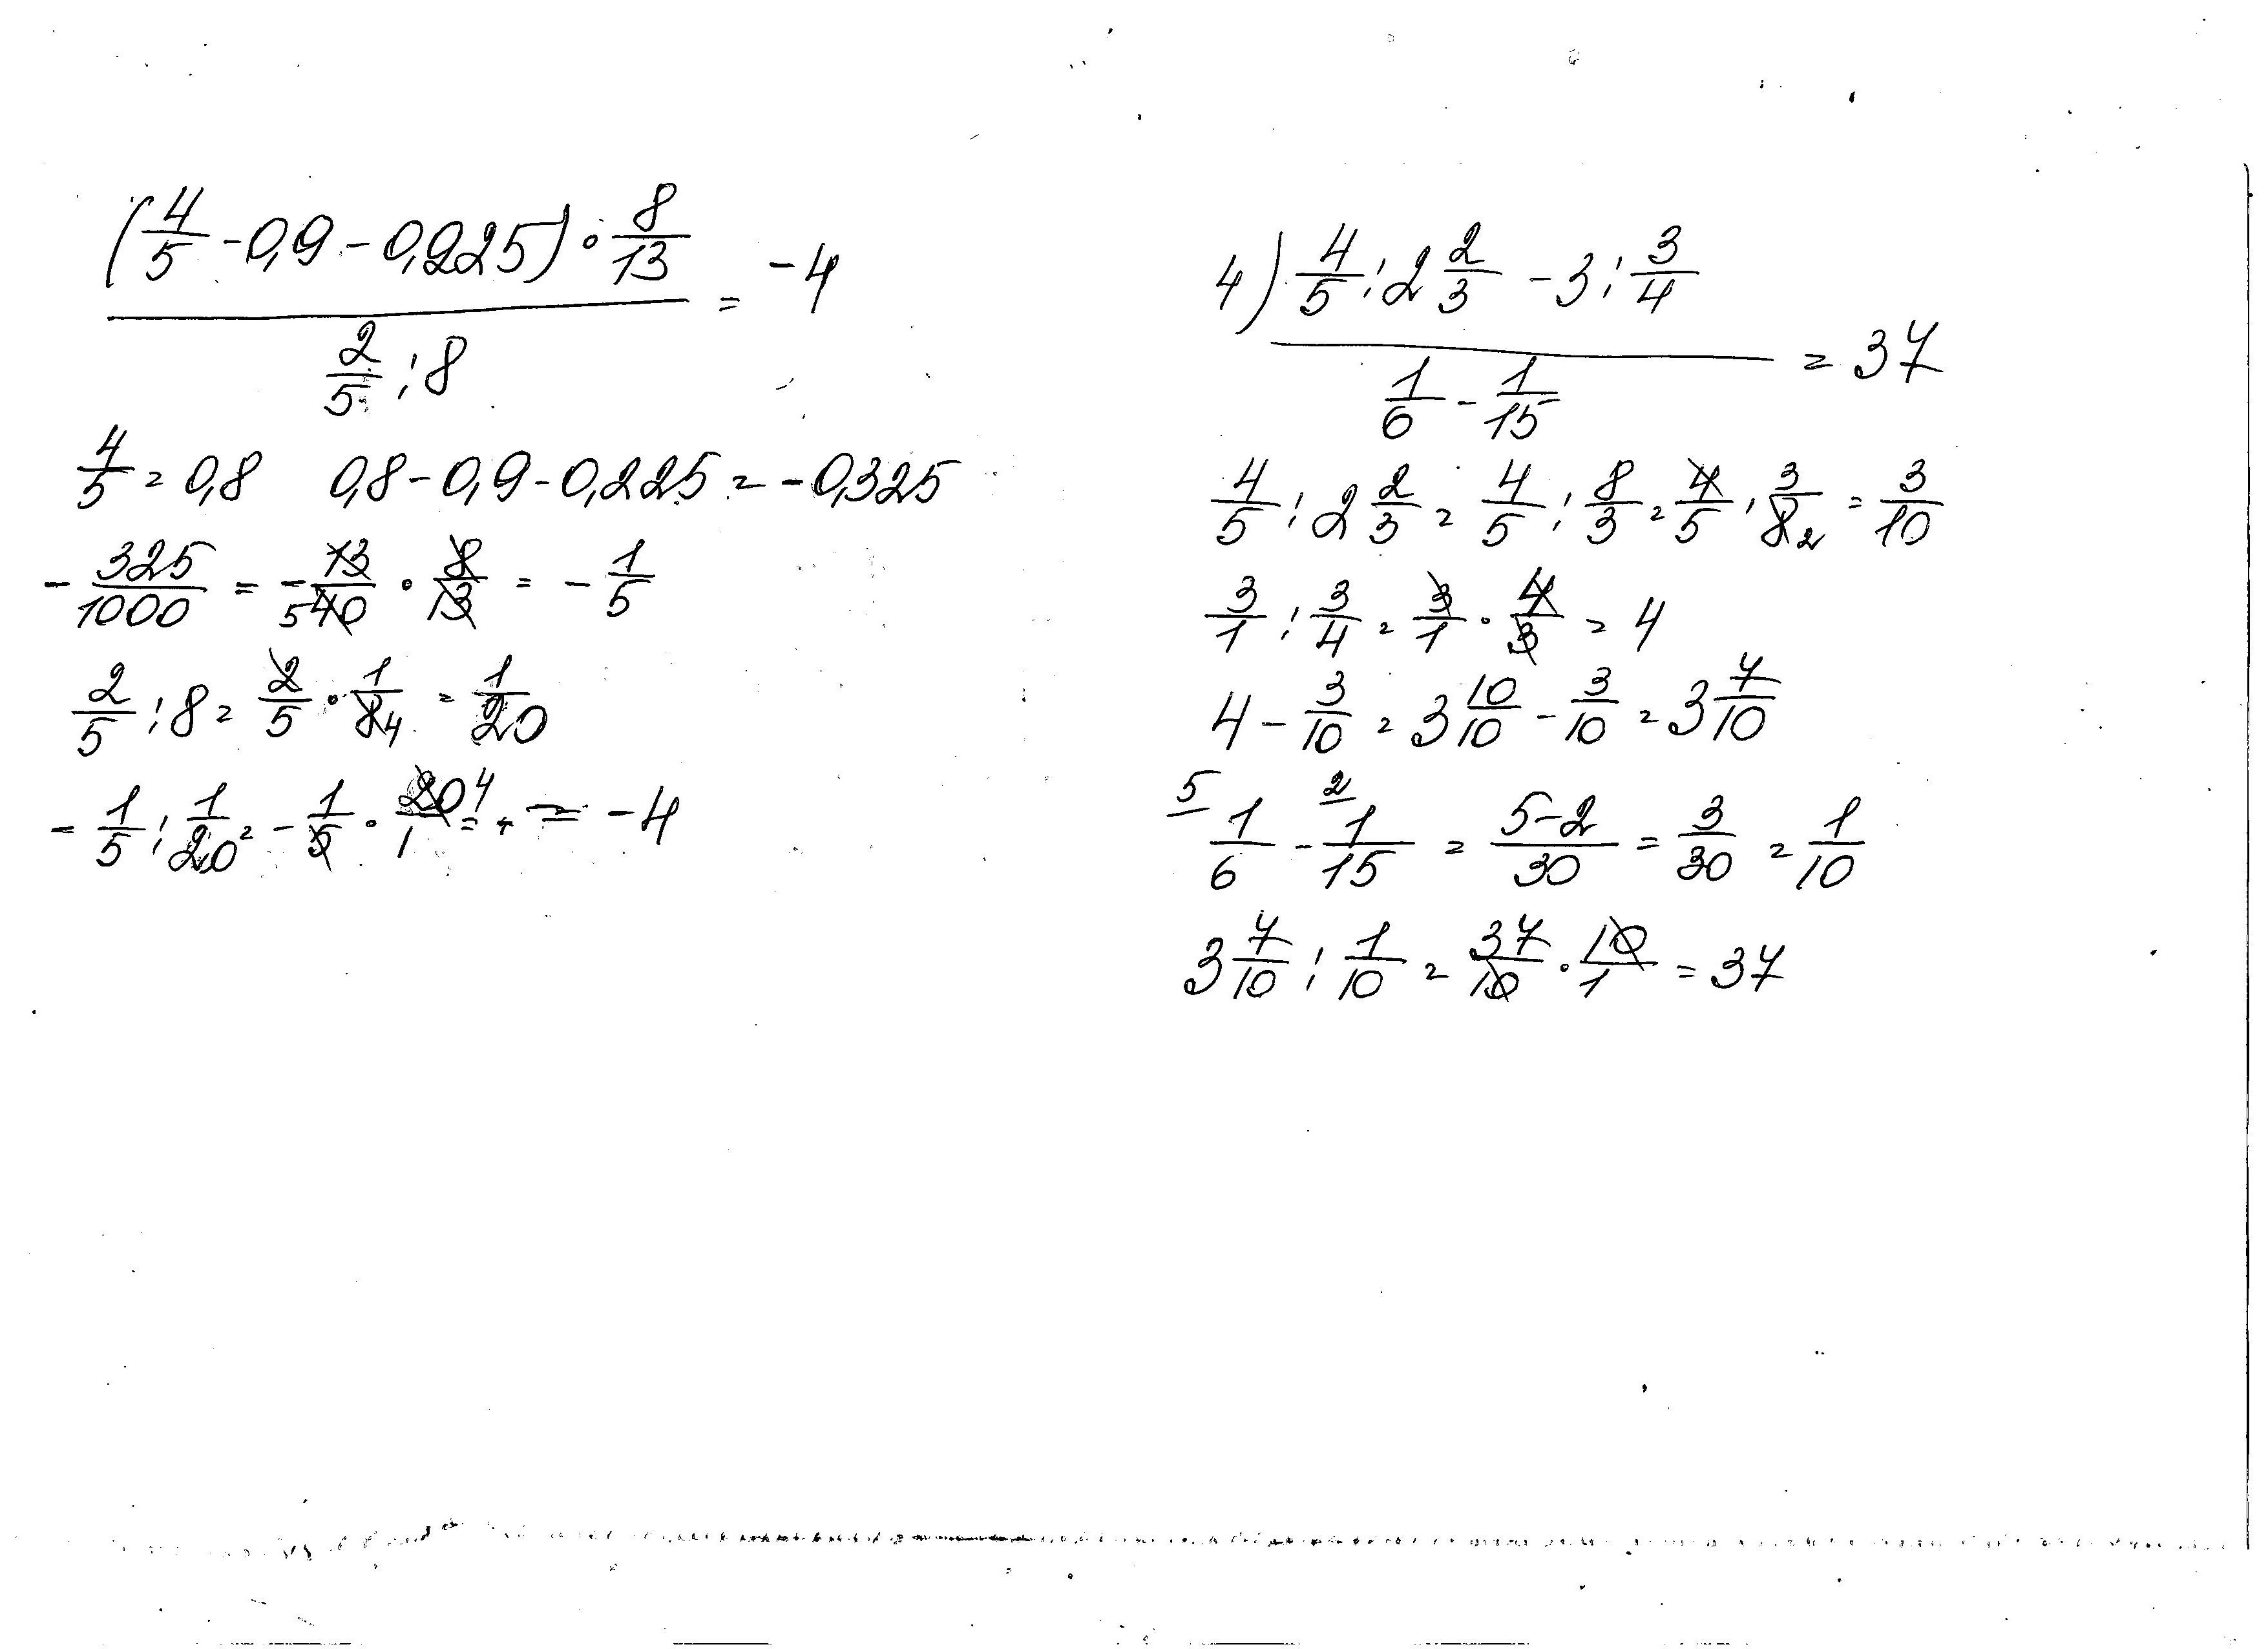 (4/5 - 0,9 - 0,225) · 8/13
―――――――――― = -4
2/5 : 8
4/5 = 0,8   0,8 - 0,9 - 0,225 = -0,325
- 325/1000 = - 13/40 5 · 8/13 = - 1/5
2/5 : 8 = 2/5 · 1/8 4 = 1/20
- 1/5 : 1/20 = - 1/5 · 20/1 4 = + = -4
4) 4/5 : 2 2/3 - 3 : 3/4
―――――――――― = 37
1/6 - 1/15
4/5 : 2 2/3 = 4/5 : 8/3 = 4/5 · 3/8 2 = 3/10
3/1 : 3/4 = 3/1 · 4/3 = 4
4 - 3/10 = 3 10/10 - 3/10 = 3 7/10
5 1/6 - 2 1/15 = 5-2/30 = 3/30 = 1/10
3 7/10 : 1/10 = 37/10 · 10/1 = 37